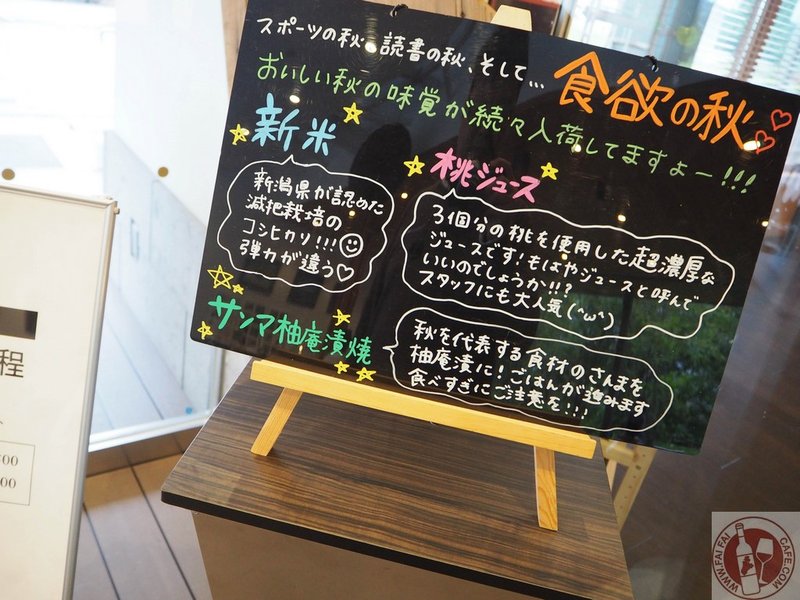 スポーツの秋、読書の秋、そして...
食欲の秋
おいしい秋の味覚が続々入荷してますよー!!!
新米
新潟県が認めた
減肥栽培の
コシヒカリ!!!
弾力が違う♡
桃ジュース
3個分の桃を使用した超濃厚な
ジュースです!もはやジュースと呼んで
いいのでしょうか!!?
スタッフにも大人気(^ω^)
サンマ柚庵漬焼
秋を代表する食材のさんまを
柚庵漬に!ごはんが進みます
食べすぎにご注意を!!!
程
00
00
WWW.FAI FAI CAFE.COM